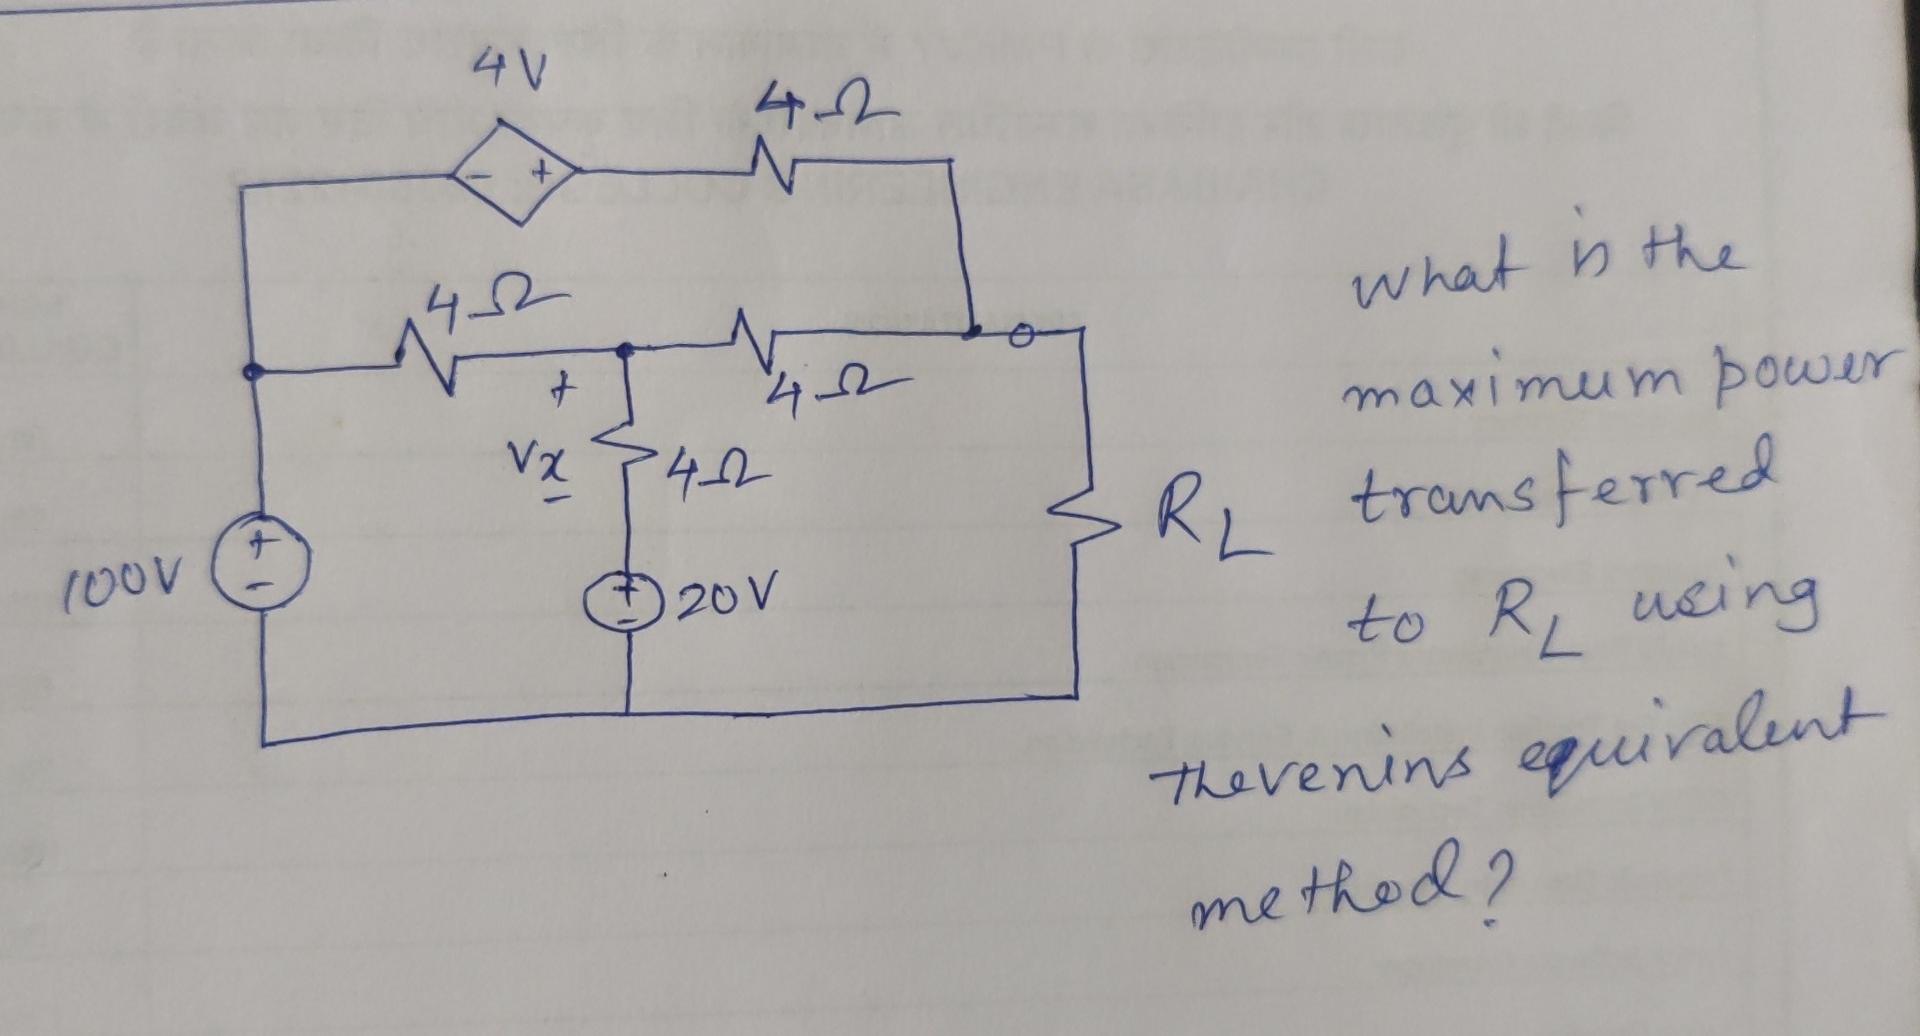 4V
4Ω
- +
4Ω
4Ω
+
Vx
-
4Ω
100V
+
-
+
-
20V
RL
what is the
maximum power
transferred
to RL using
Thevenins equivalent
method?